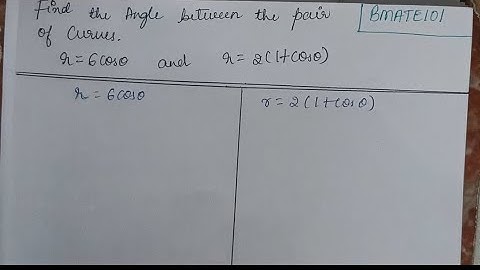 Find the Angle between the pair
of Curves.
BMATE101
r = 6cosθ and r = 2(1+cosθ)
r = 6cosθ
r = 2(1+cosθ)